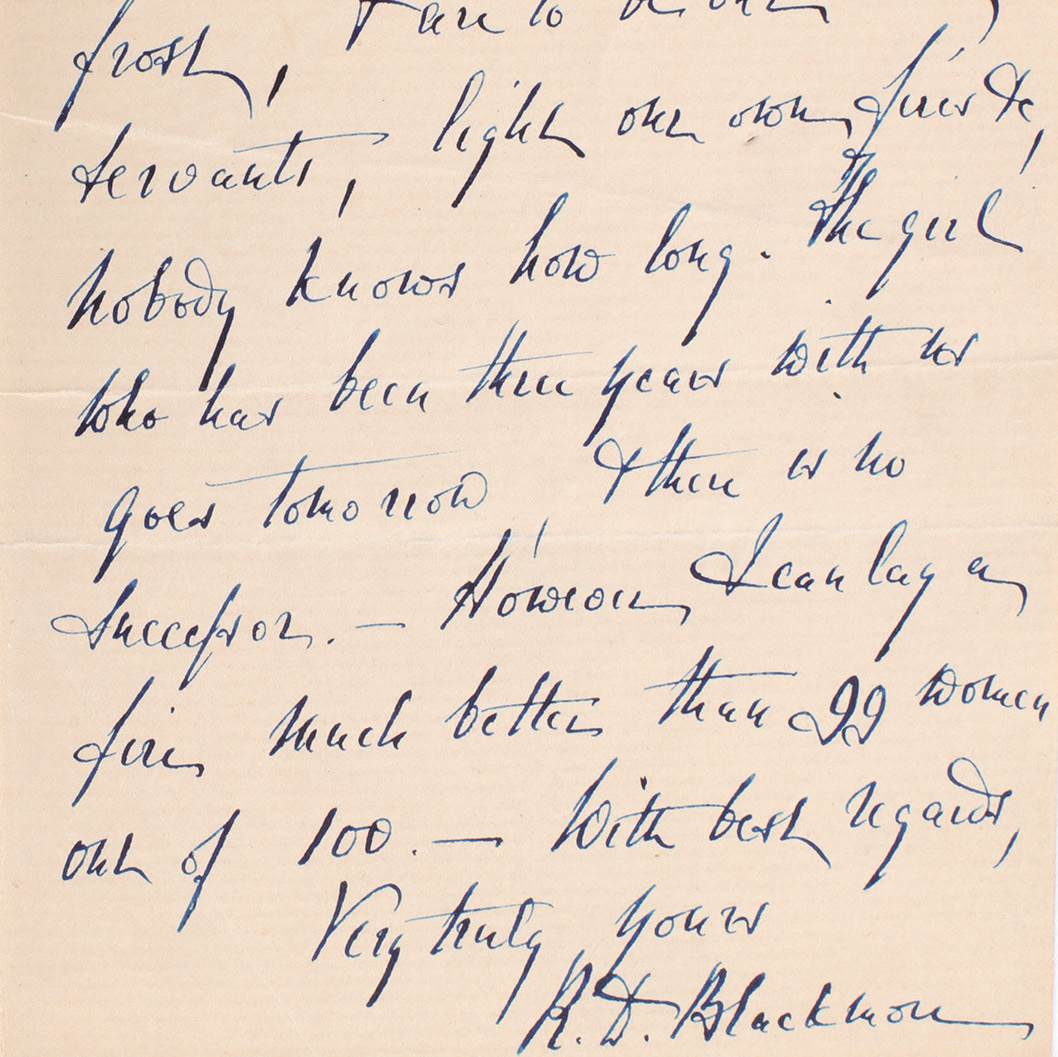 frost, & are to be our
servants, light our own fires &c,
nobody knows how long. The girl
who has been three years with us
goes tomorrow & there is no
successor. — However, I can lay a
fire much better than 99 women
out of 100. — With best regards,
Very truly yours
R. D. Blackmore